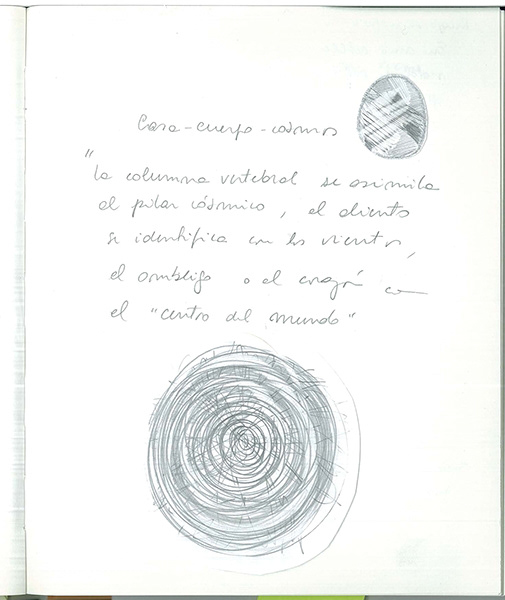 Casa-cuerpo-cosmos
"la columna vertebral se asimila
al pilar cósmico, el aliento
se identifica con los vientos,
el ombligo o el corazón con
el "centro del mundo"